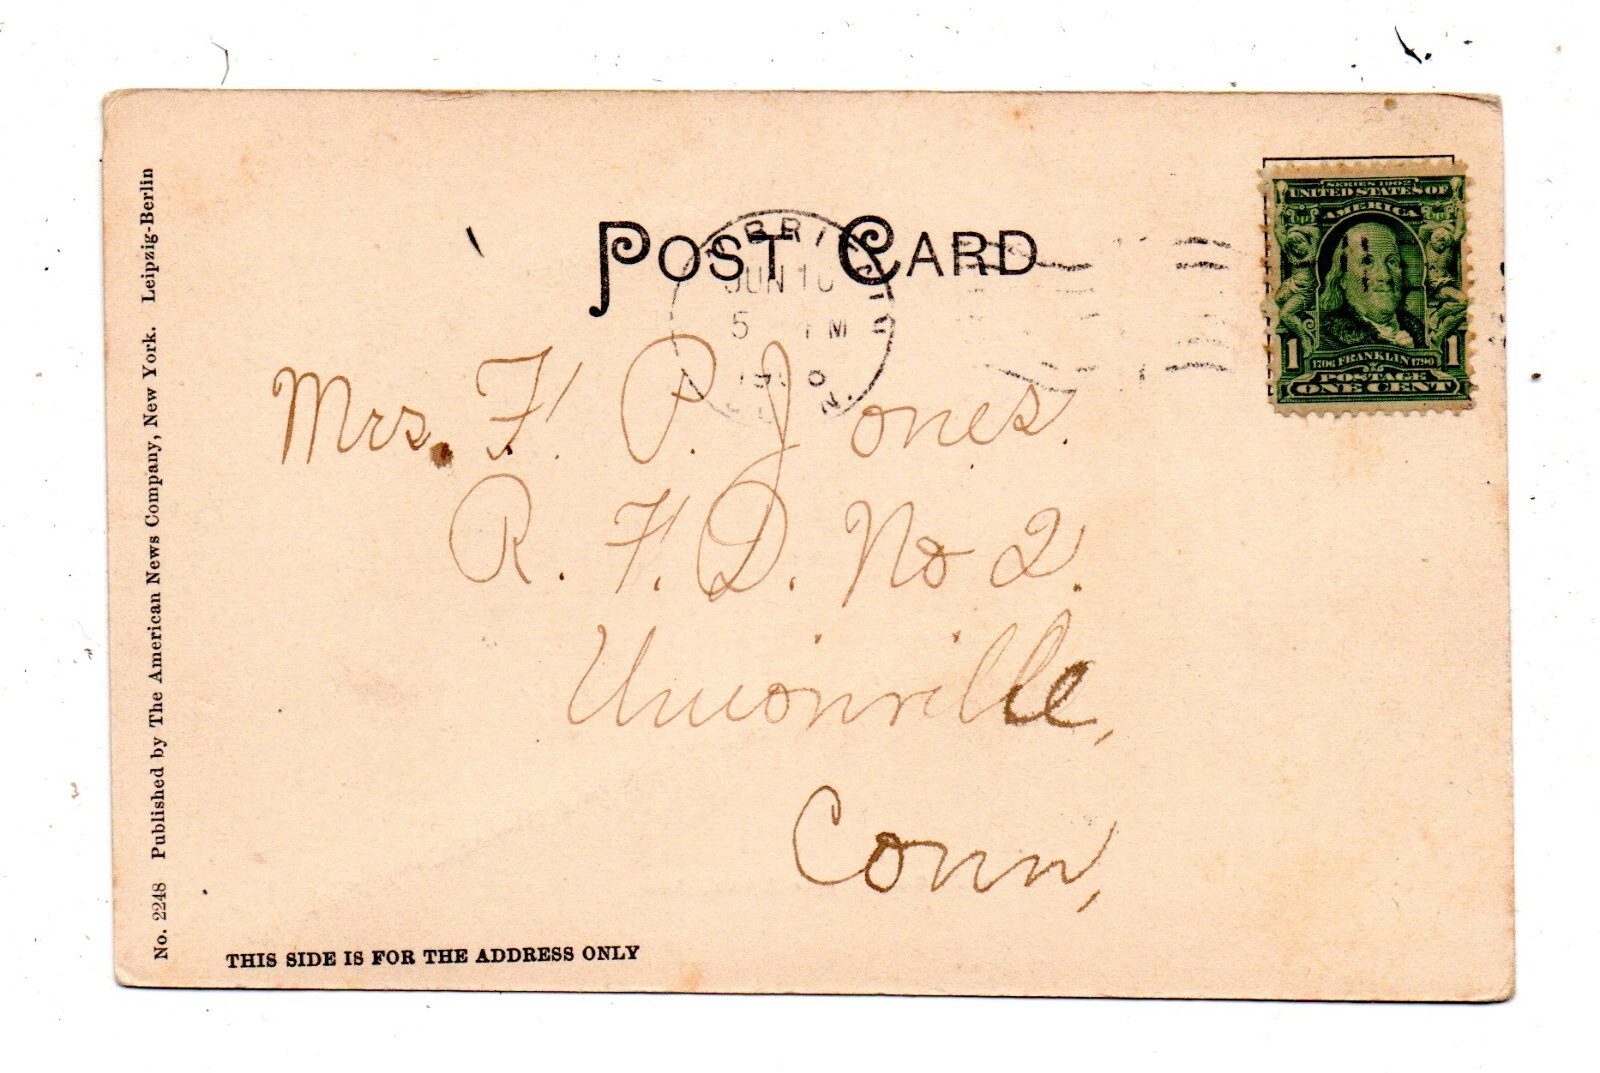 POST CARD
JUN 10
5 PM
SERIES 1902
UNITED STATES OF
AMERICA
1 1
1706 FRANKLIN 1790
POSTAGE
ONE CENT
Mrs. F. P. Jones.
R. F. D. No 2.
Unionville,
Conn,
No. 2248 Published by The American News Company, New York. Leipzig-Berlin
THIS SIDE IS FOR THE ADDRESS ONLY